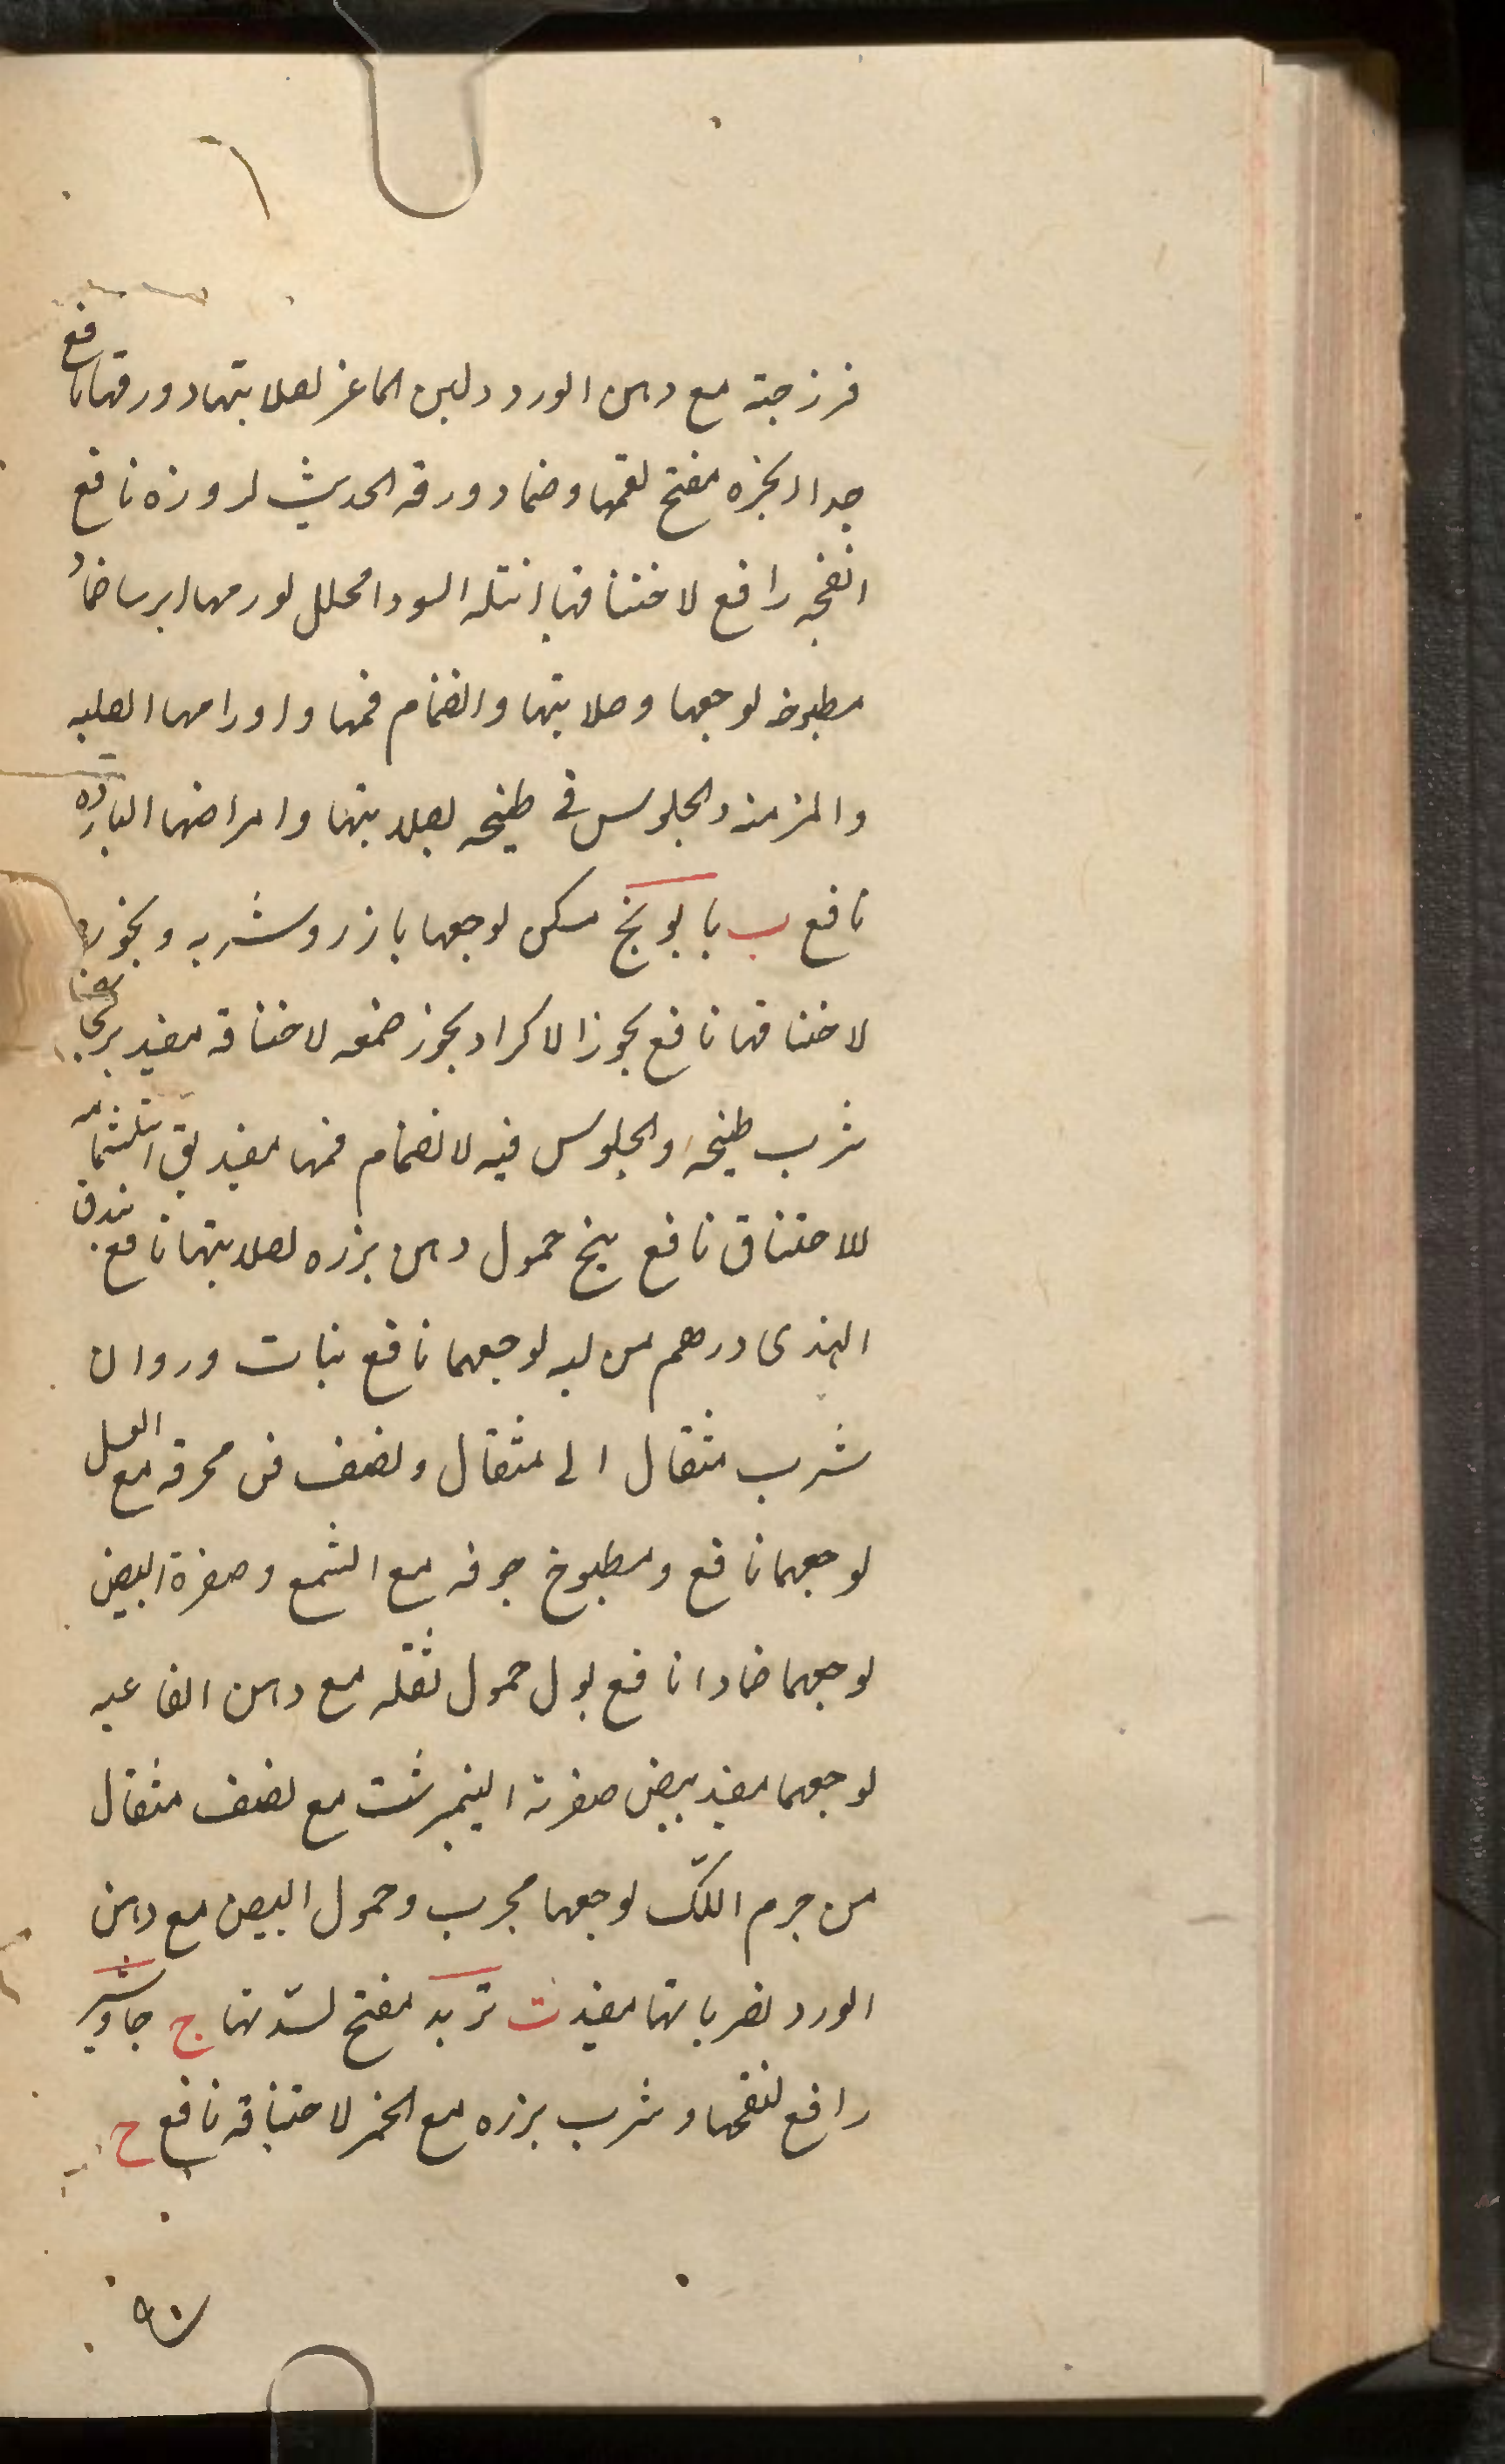 فرزجته مع دهن الورد ولبن الماعز لصلابتها وورقها نافع
جدا انجره مفتح لفمها وضماد ورقه الحديث لبروزه نافع
انفجه رافع لاختناقها انتله السودا محلل لورمها ايرسا ضمادُ
مطبوخه لوجعها وصلابتها وانضمام فمها واورامها الصلبه
والمزمنه والجلوس فى طبيخه لصلابتها وامراضها البارده
نافع ب بابونج مسكن لوجعها بازرد وشربه وبخوره
لاختناقها نافع بخور الاكراد بخور ضمغه لاختناقه مفيد
شرب طبيخه والجلوس فيه لانضمام فمها مفيد بق استشمامه
للاختناق نافع بنج حمول دهن بزره لصلابتها نافع بندق
الهندى درهم من لبه لوجعها نافع بنات وروان
شرب مثقال الى مثقال ونصف من محرقه مع العسل
لوجعها نافع ومطبوخ جرفه مع الشمع وصفرة البيض
لوجعها ضمادا نافع بول حمول ثقله مع دهن الفاغيه
لوجعها مفيد بيض صفرته النيمبرشت مع نصف مثقال
من جرم اللك لوجعها مجرب وحمول البيض مع دهن
الورد لضرباتها مفيد ت تربد مفتح لسدتها ج جاوشير
رافع لنفخها وشرب بزره مع الخمر لاختناقه نافع ح